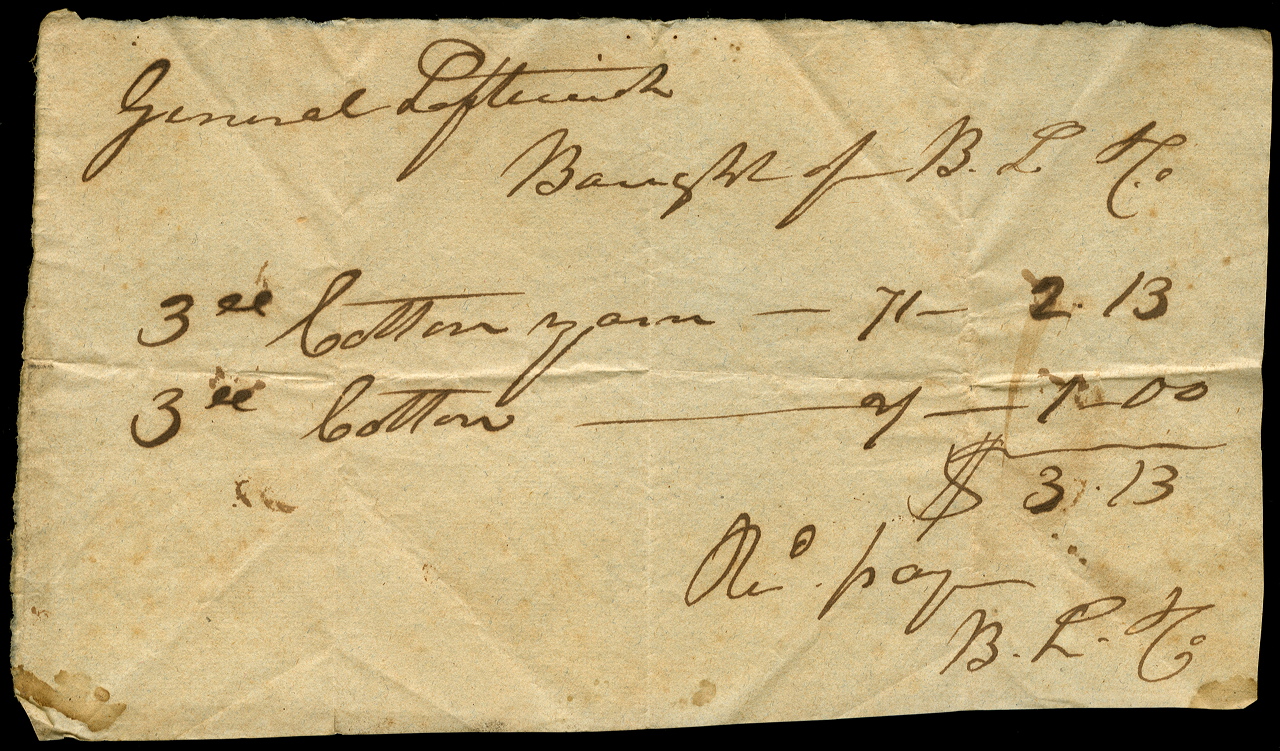 General Leftwich
Bought of B. L & Co
3 lb Cotton yarn — 71 — 2.13
3 lb Cotton — — 1.00
$ 3.13
Recd. pay
B. L. & Co